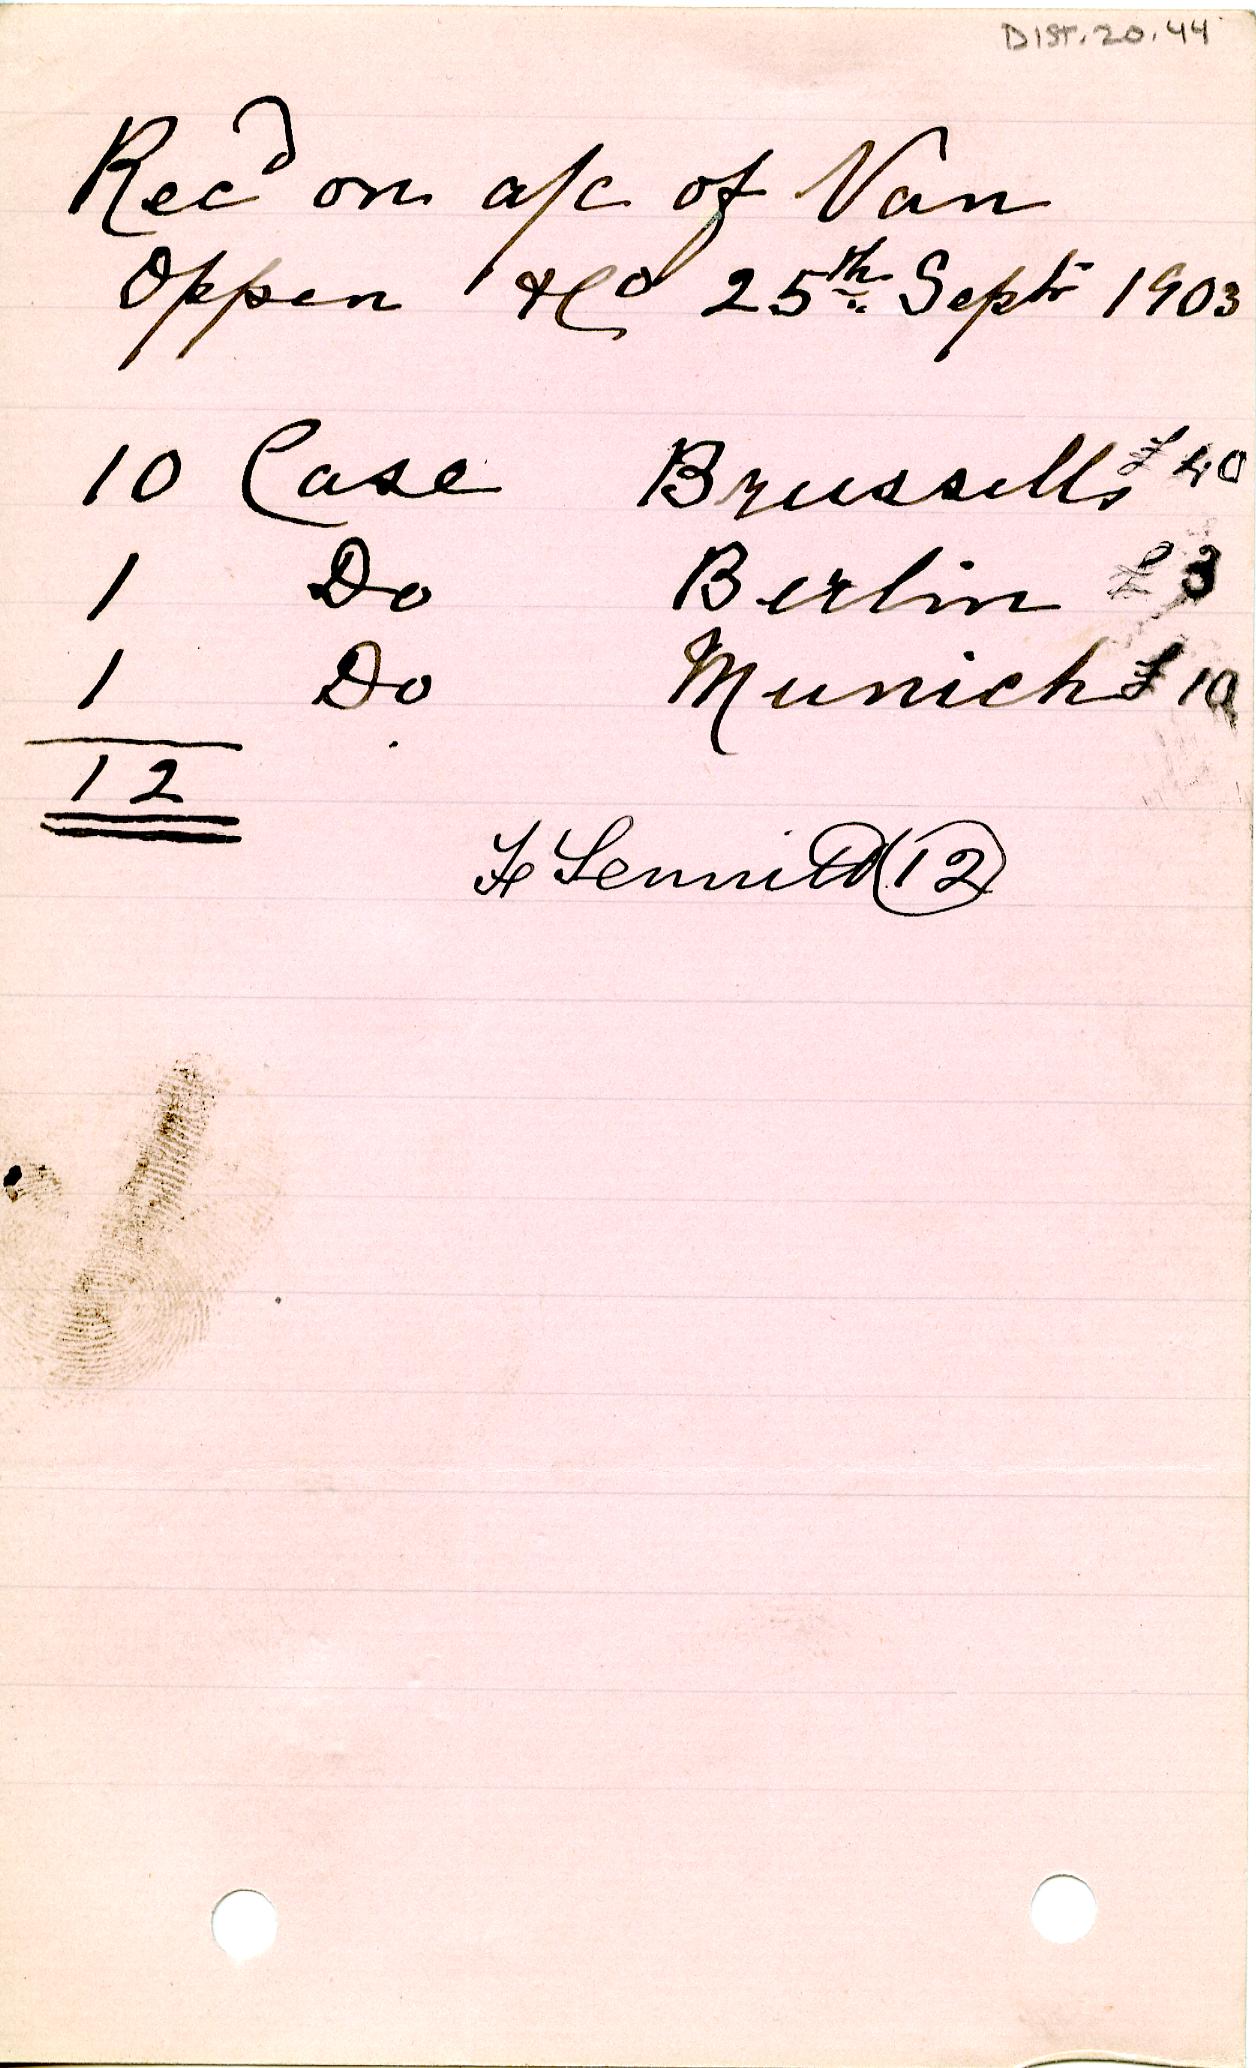 DIST.20.44
Recd on a/c of Van
Oppen & Co 25th Septr 1903
10 Case Brussells £40
1 Do Berlin £3
1 Do Munich £10
12
12